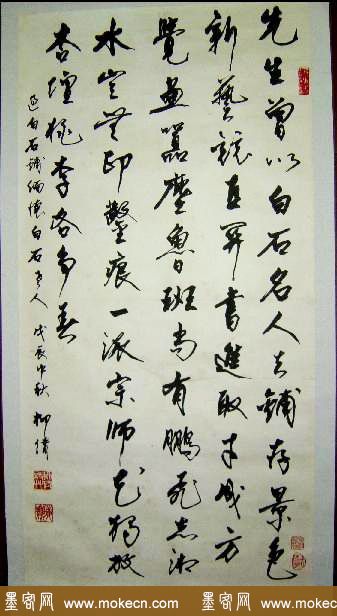 先生曾以白石名人去鋪存景色
新藝競直書進取才成方
覺盡囂塵魯班尚有鵬飛志湘
水豈無印鑿痕一派宗師花獨放
杏壇桃李各爭春
過白石鋪緬懷白石老人 戊辰中秋 柳倩
墨客网 www.mokecn.com 墨客网 www.mokecn.com